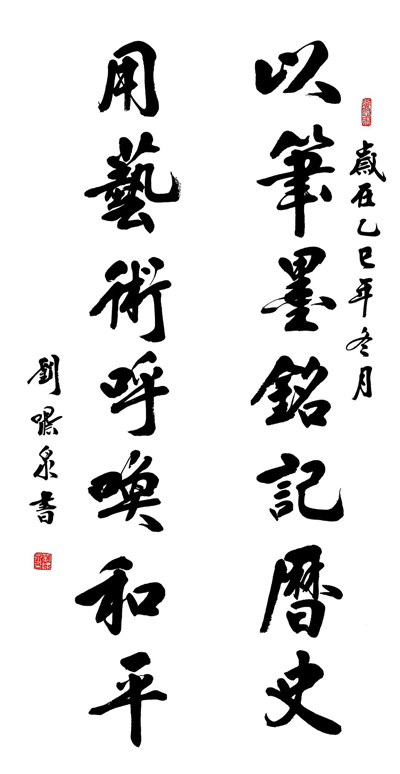 歲在乙巳年冬月
以筆墨銘記曆史
用藝術呼喚和平
劉泉書